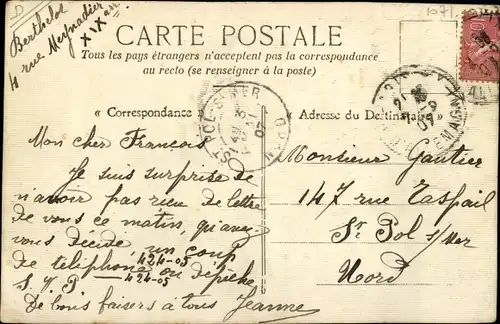 D
Berthelot
4 rue Meynadier
XIXem
1071
CARTE POSTALE
Tous les pays étrangers n'acceptent pas la correspondance
au recto (se renseigner à la poste)
« Correspondance »
« Adresse du Destinataire »
ST POL-S-MER
NORD
07
10
Mon cher François
Je suis surprise de
n'avoir pas rien de lettre
de vous ce matin, qu'avez-
vous Décidé, un coup
424-05
de téléphone ou dépêche
S. V. P. 424-05
De bons baisers à tous Jeanne
Monsieur Gautier
147 rue Raspail
St Pol s/Mer
Nord